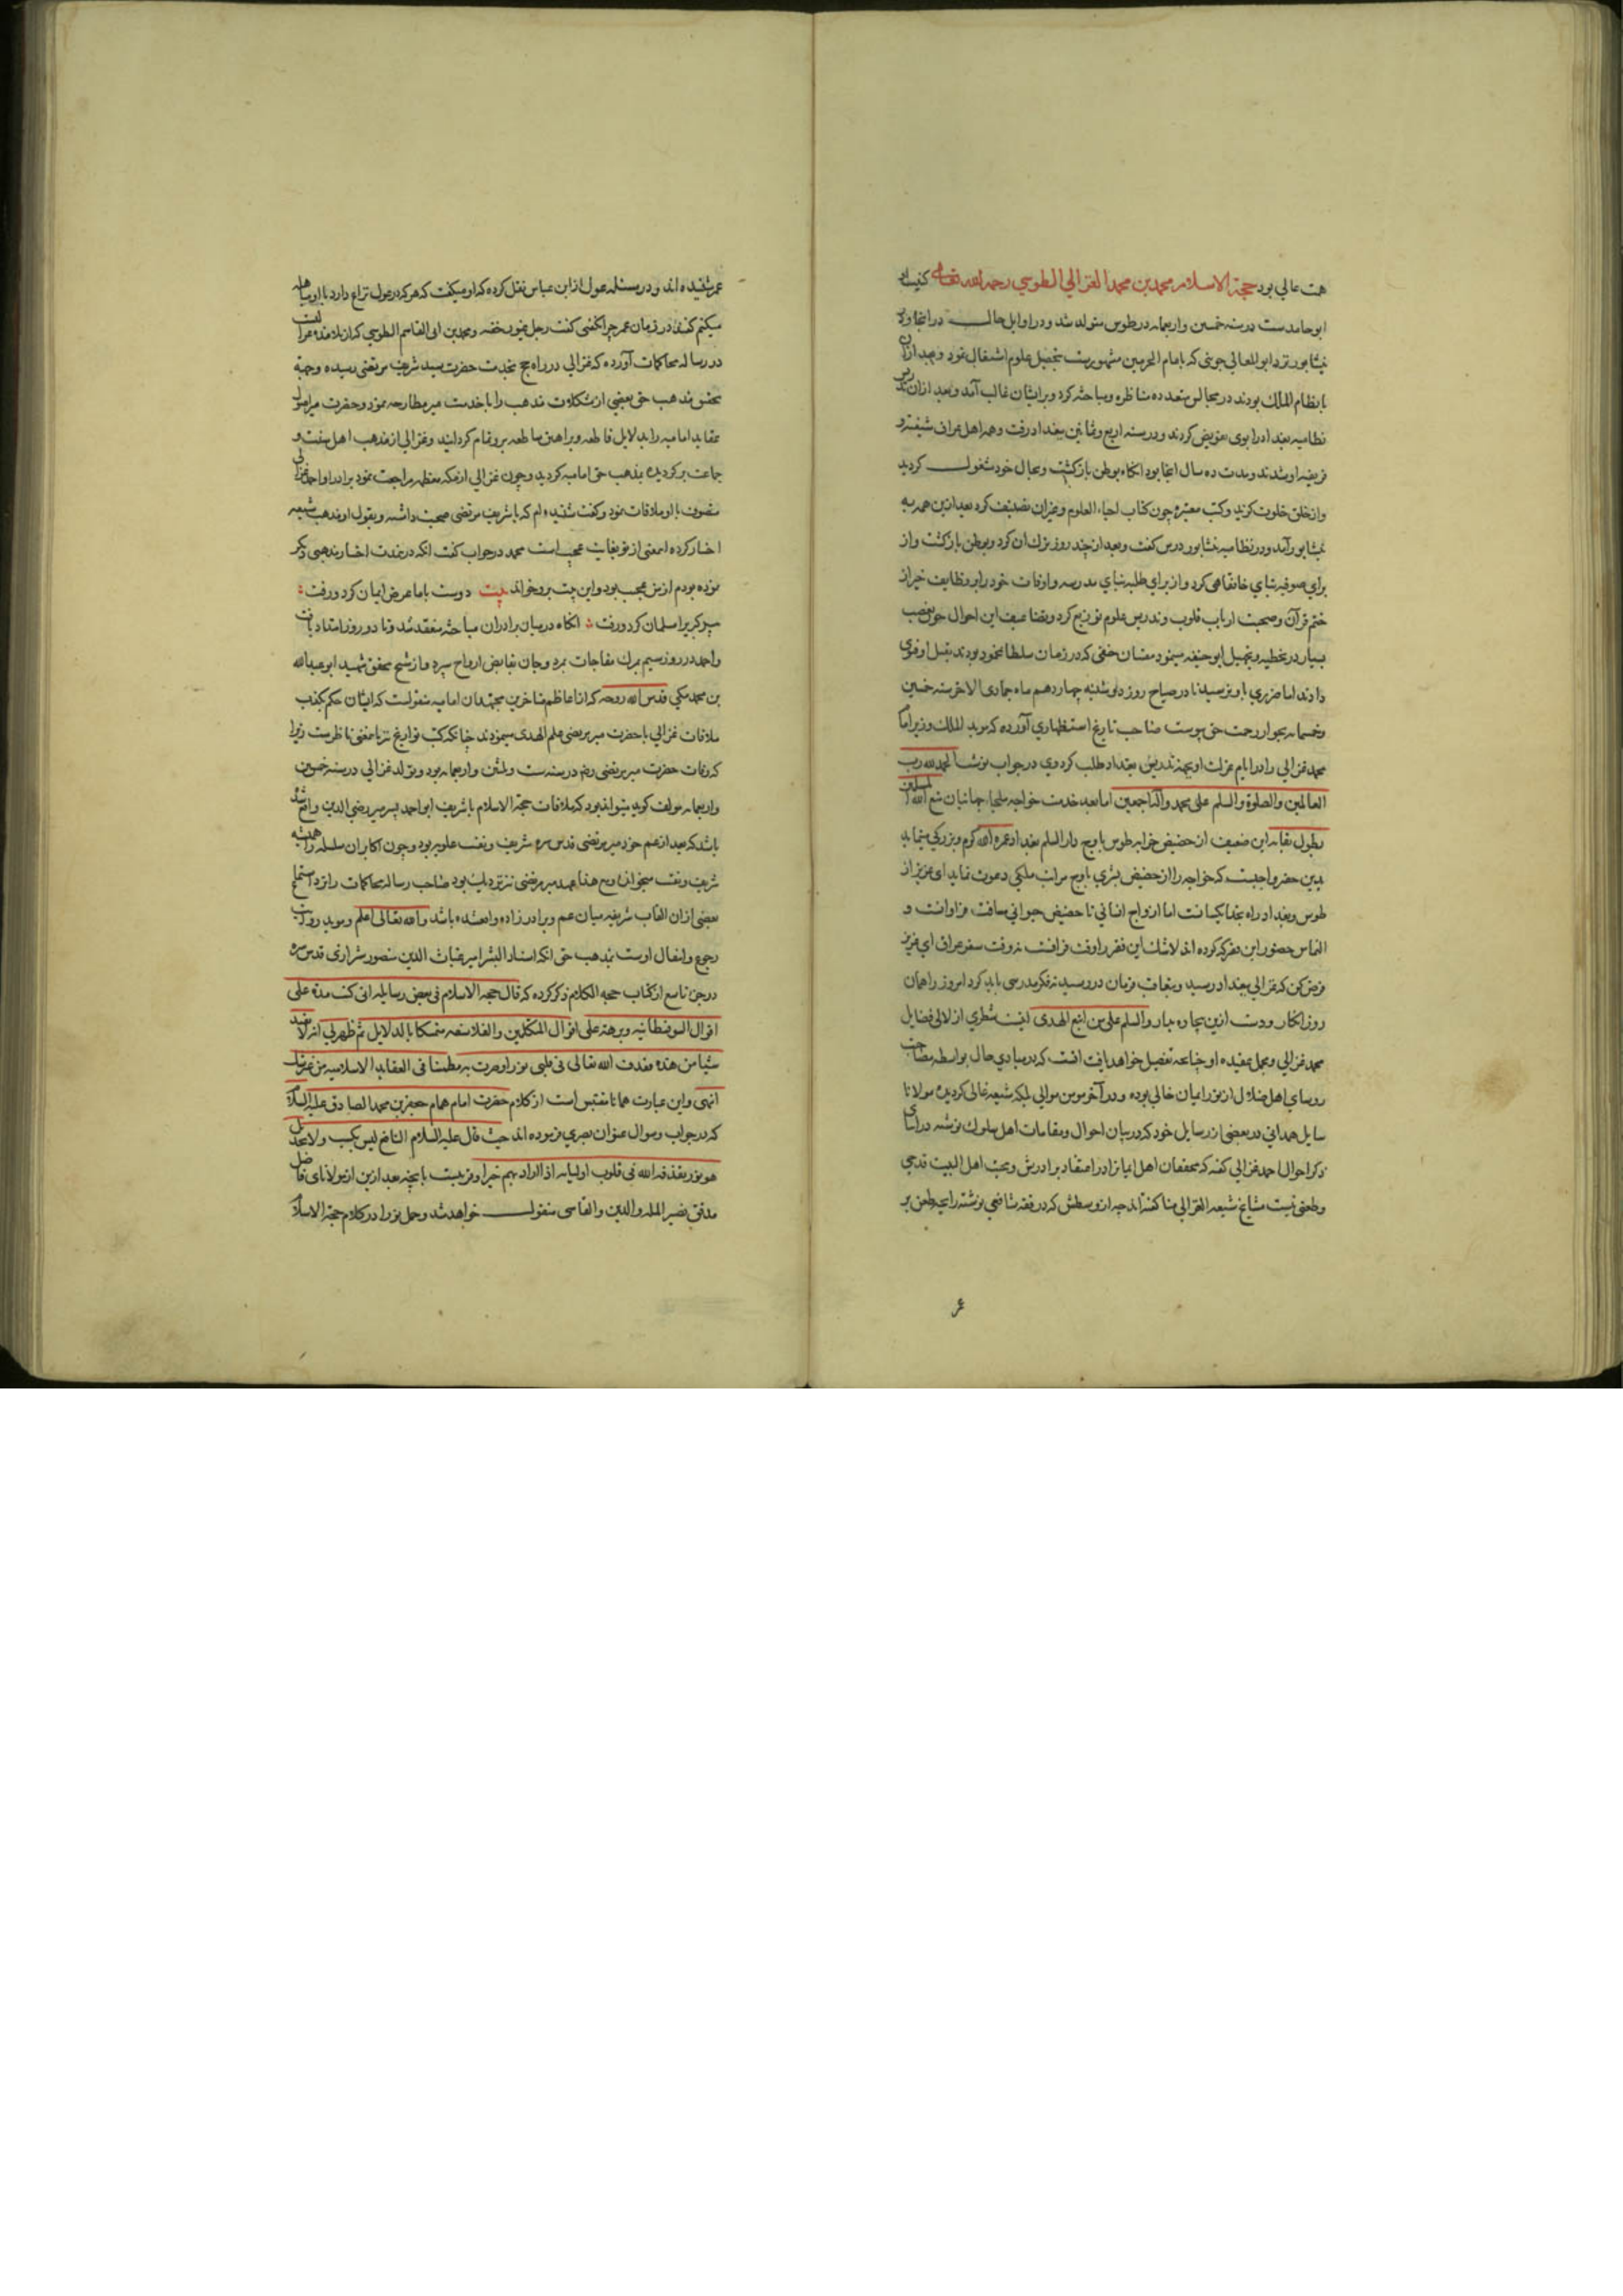 همت عالی بود حجة الاسلام محمد بن محمد الغزالي الطوسي رحمه الله تعالی کنیت او
ابو حامدست در سنه خمسین و اربعمایه در طوس متولد شد و در اوایل حال در انجا و در
نیشابور نزد ابو المعالی جوینی که بامام الحرمین مشهورست بتحصیل علوم اشتغال نمود و بعد ازان
با نظام الملك بودند در مجالس متعدده مناظره و مباحثه کرد و بر ایشان غالب آمد و بعد ازان تدریس
نظامیه بغداد را بوی تفویض کردند و در سنه اربع و ثمانین ببغداد رفت و همه اهل عراق شیفته و
فریفته او شدند و مدت ده سال انجا بود انکاه بوطن بازکشت و بحال خود مشغول کردید
و از خلق خلوت کزید و کتب معتبره چون کتاب احیاء العلوم و غیران تصنیف کرد بعد ازین همه به
نیشابور آمد و در نظامیه نیشابور درس کفت و بعد از چند روز ترك ان کرد و بوطن بازکشت و از
برای صوفیه بنای خانقاهی کرد و از برای طلبه بنای مدرسه و اوقات خود را بر وظایف خیر از
ختم قرآن و صحبت ارباب قلوب و تدریس علوم توزیع کرد و در تضاعیف این احوال چون تعصب
بسیار در تخطیه و تجهیل ابو حنیفه مینمود مفتیان حنفی که در زمان سلطان محمود بودند بقتل او فتوی
دادند اما ضرری باو نرسید تا در صباح روز دوشنبه چهاردهم ماه جمادی الاخر سنه خمسین
و خمسمایه بجوار رحمت حق پیوست صاحب تاریخ استظهاری آورده که موید الملك وزیر امام
محمد غزالی را در ایام عزلت او بجهة تدریس بغداد طلب کرد وی در جواب نوشت الحمد لله رب
العالمین و الصلوة و السلم علی محمد و آله اجمعین اما بعد خدمت خواجه ملجاء جهانیان متع الله المسلمین
بطول بقایه این ضعیف از حضیض خرابه طوس باوج دار السلم بغداد عمره الله کرم و بزرکی مینماید
برین حضر واجبست که خواجه را از حضیض بشری باوج مراتب ملکی دعوت نماید ای عزیز از
طوس و بغداد راه بخدا یکسانست اما از اوج انسانی تا حضیض حیوانی مسافت فراوانست و
التماس حضور این فقیر که کرده اند لا شك این فقیر را وقت فراقست نه وقت سفر عراق ای عزیز
فرض کن که غزالی ببغداد رسید و متعاقب فرمان در رسید نه فکر مدرسی باید کرد امروز را همان
روز انکار و دست ازین بیچاره بدار و السلم علی من اتبع الهدی اینست شطری از لالی فضایل
محمد غزالی و مجمل عقیده او چنانچه تفصیل خواهد یافت انست که در مبادی حال بواسطه مصاحبت
روسای اهل ضلال از نور ایمان خالی بوده و در آخر مومن موالی بلکه شیعه غالی کردیده مولانا
سایل همدانی در بعضی از رسایل خود که در بیان احوال و مقامات اهل سلوك نوشته در اثنای
ذکر احوال احمد غزالی کفته که محققان اهل ایمان را در اعتقاد برادرش و محبت اهل البیت قدحی
و طعنی نیست مشایخ شیعه الغزالی منا کفته اند چه از وسطش که در فقه شافعی نوشته رایحه طعن بر
عمر
عمر شنیده اند و در مسئله عول از ابن عباس نقل کرده که او میکفت که هر که در عول نزاع دارد با او مباهله
میکنم کفتند در زمان عمر چرا نکفتی کفت رجل مهیب خفته و محمد بن ابی القاسم الطوسی که از تلامذه غزالیست
در رساله محاکمات آورده که غزالی در راه حج بخدمت حضرت سید شریف مرتضی رسیده و جهة
تحقیق مذهب حق بعضی از مشکلات مذهب را با خدمت میر مطارحه نمود و حضرت میر اصول
عقاید امامیه را بدلایل قاطعه و براهین ساطعه برو تمام کردانید و غزالی از مذهب اهل سنت و
جماعت برکردیده بمذهب حق امامیه کردید و چون غزالی از مکه معظمه مراجعت نمود برادر او احمد غزالی
متصوف با او ملاقات نمود و کفت شنیده ام که با شریف مرتضی صحبت داشته و بقول او مذهب شیعه
اختیار کرده ایمعنی از تو بغایت عجیب است محمد در جواب کفت انکه در مدت اختیار مذهبی دیکر
نموده بودم از من عجیب بود و این بیت برو خواند بیت دوست با ما عرض ایمان کرد و رفت
پیر کبر را مسلمان کرد و رفت انکاه در میان برادران مباحثه منعقد شد و تا دو روز امتداد یافت
و احمد در روز سیم بمرك مفاجات بمرد و جان بقابض ارواح سپرد و از شیخ محقق شهید ابو عبد الله
بن محمد مکی قدس الله روحه که از اعاظم متاخرین مجتهدان امامیه منقولست که ایشان حکم بکذب
ملاقات غزالی با حضرت میر مرتضی علم الهدی مینمودند چنانکه کتب تواریخ نیز بانمعنی ناظرست زیرا
که وفات حضرت میر مرتضی رضه در سنه ست و ثلثین و اربعمایه بود و تولد غزالی در سنه خمسین
و اربعمایه مولف کوید میتواند بود که ملاقات حجة الاسلام با شریف ابو احمد پسر میر رضی الدین واقع شده
باشد که بعد از عم خود میر مرتضی قدس سره شریف و نقیب علویه بود و چون اکابران سلسله را همیشه
شریف و نقیب میخوانند و مع هذا عهد میر مرتضی نیز نزدیك بود صاحب رساله محاکمات را از استماع
بعضی ازان القاب شریفه میان عم و برادرزاده واقعشده باشد و الله تعالی اعلم و موید روایت
رجوع و انتقال اوست بمذهب حق انکه استاد البشر امیر غیاث الدین منصور شیرازی قدس سره
در جزء تاسع از کتاب حجه الکلام ذکر کرده که قال حجه الاسلام فی بعض رسایله انی کنت مدة علی
اقوال السوفسطائیه و برهة علی اقوال المتکلمین و الفلاسفه متمسکا بالدلایل ثم ظهر لی انه لا یفید
شیا من هذه فقذف الله تعالی فی قلبی نورا و صرت به مطمئنا فی العقاید الاسلامیه من غیر شك
انتهی و این عبارت همانا مقتبس است از کلام حضرت امام همام جعفر بن محمد الصادق علیه السلام
که در جواب و سوال عنوان بصری فرموده اند حیث قال علیه السلام لیس بکسب و لا بجدل
هو نور یقذفه الله فی قلوب اولیایه اذا اراد بهم خیرا و قریبست بانچه بعد ازین از مولانای فاضل
مدقق نصیر المله و الدین و القاسی منقول خواهد شد و حمل نور را در کلام حجة الاسلام